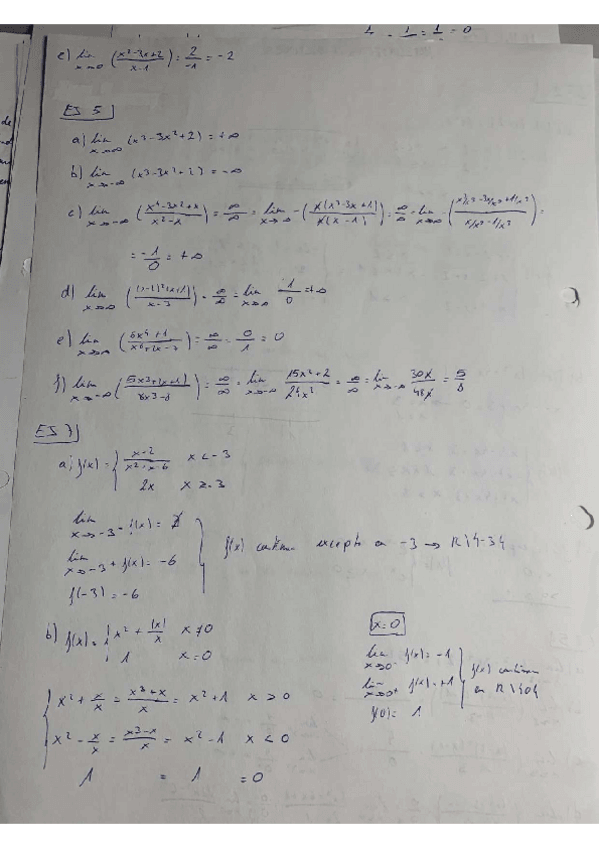 1/ - 1/ = 1/ = 0
e) lim x→0 (x²-3x+2 / x-1) = 2/-1 = -2
EJ 5
a) lim x→∞ (x³-3x²+2) = +∞
b) lim x→-∞ (x³-3x²+2) = -∞
c) lim x→-∞ (x⁴-3x²+x / x²-x) = ∞/∞ = lim x→-∞ (x(x³-3x+1) / x(x-1)) = ∞/∞ = lim x→-∞ =
= -1/0 = +∞
d) lim x→∞ ( / x-3) = ∞/∞ = lim x→∞ 1/0 = +∞
e) lim = ∞/∞ = 0/1 = 0
f) lim x→-∞ = ∞/∞ = lim x→-∞ 15x²+2 / 24x² = ∞/∞ = lim x→-∞ 30x/48x = 5/8
EJ 7
a) f(x) = { x-2 / x²+x-6 x < -3
2x x ≥ -3
lim x→-3⁻ f(x) = ∄
lim x→-3⁺ f(x) = -6
f(-3) = -6
f(x) continua excepto en -3 → R\{-3}
b) f(x) = { x² + |x|/x x ≠ 0
1 x = 0
x² + x/x = x³+x / x = x²+1 x > 0
x² - x/x = x³-x / x = x²-1 x < 0
1 = 1 = 0
x=0
lim x→0⁻ f(x) = -1
lim x→0⁺ f(x) = +1
f(0) = 1
f(x) continua
en R\{0}